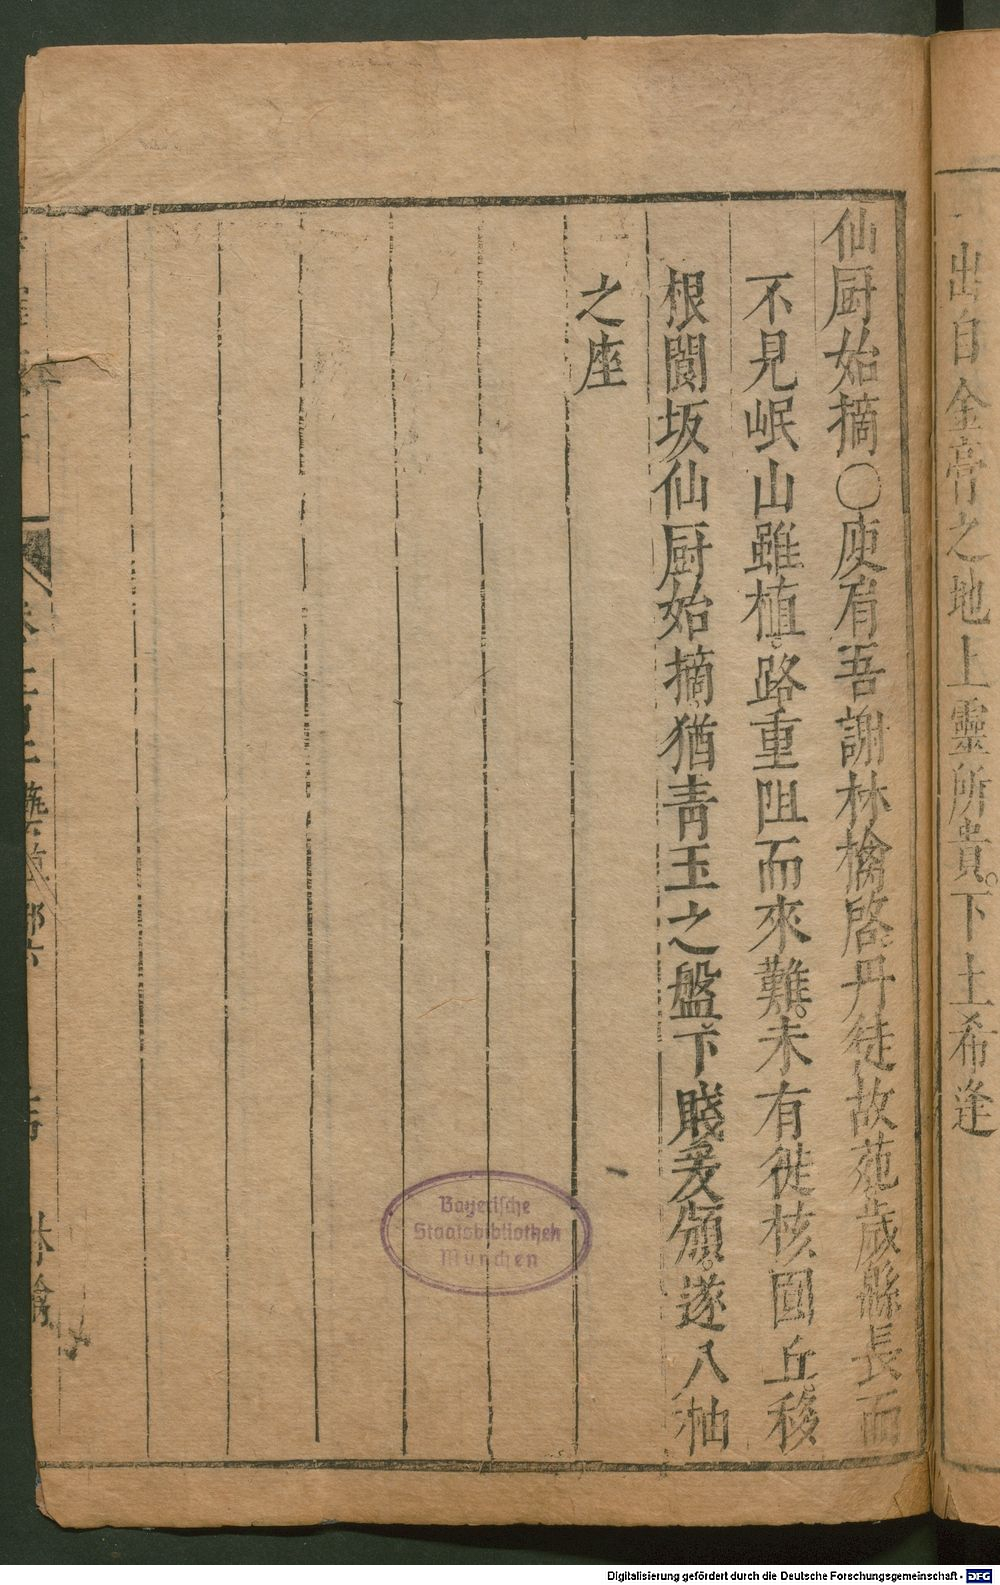 出自金膏之地上靈所貴。下土希逢
仙厨始摘〇庾肩吾謝林檎啓丹徒故苑歲綿長而
不見岷山雖植。路重阻而來難。未有徙核圓丘移
根閬坂仙厨始摘猶青玉之盤下賤爰頒。遂入柚
之座
林檎
Bayerische
Staatsbibliothek
München
Digitalisierung gefördert durch die Deutsche Forschungsgemeinschaft - DFG